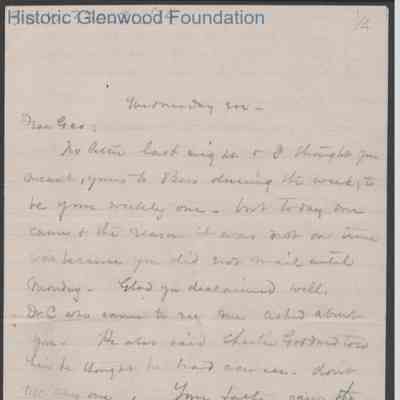 Historic Glenwood Foundation
Wednesday eve -
Dear Geo:
No letter last night & I thought you
meant, yours to Bess during the week, to
be your weekly one - but today one
came & the reason it was not on time
was because you did not mail until
Monday - Glad you declaimed well.
Dr C who came to see me asked about
you - He also said Charlie Goddard told
him he thought he had cancer - dont
one, Your